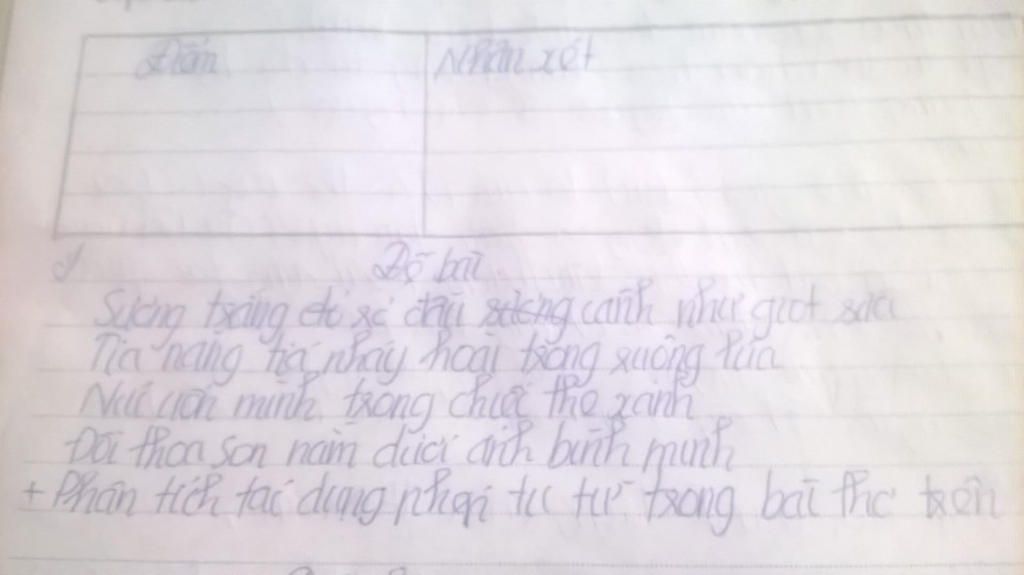 Điểm
Nhận xét
Đề bài
Sương trắng đỏ xí đầu cành như giọt sữa
Tia nắng tía nháy hoài trong ruộng lúa
Núi uốn mình trong chiếc the xanh
Đồi thoa son nằm dưới ánh bình minh
+ Phân tích tác dụng phép tu từ trong bài thơ trên